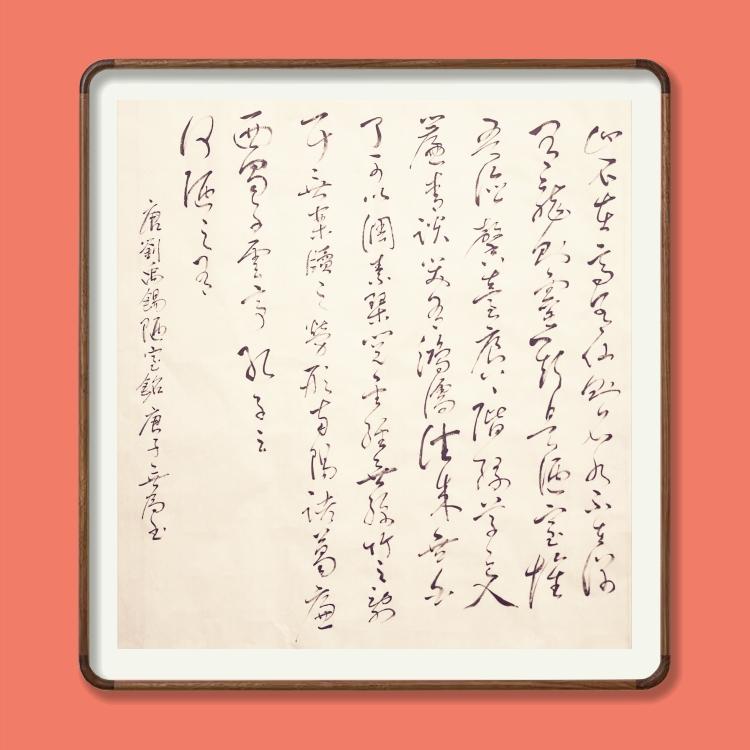 山不在高有仙則名水不在深
有龍則靈斯是陋室惟
吾德馨苔痕上階綠草色入
簾青談笑有鴻儒往來無白
丁可以調素琴閱金經無絲竹之亂
耳無案牘之勞形南陽諸葛廬
西蜀子雲亭孔子云
何陋之有
唐劉禹錫陋室銘庚子